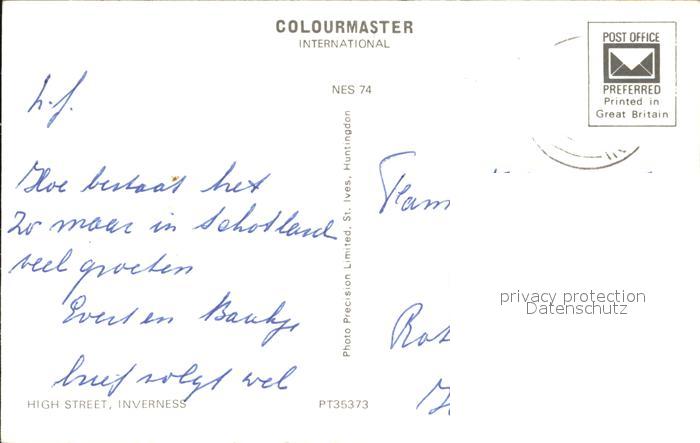 COLOURMASTER
INTERNATIONAL
NES 74
POST OFFICE
PREFERRED
Printed in
Great Britain
Hoe bestaat het
Zo maar in Schotland
veel groeten
Evert en Baukje
brief volgt wel
HIGH STREET, INVERNESS
PT35373
Photo Precision Limited, St. Ives, Huntingdon
Fam
Rot
privacy protection
Datenschutz